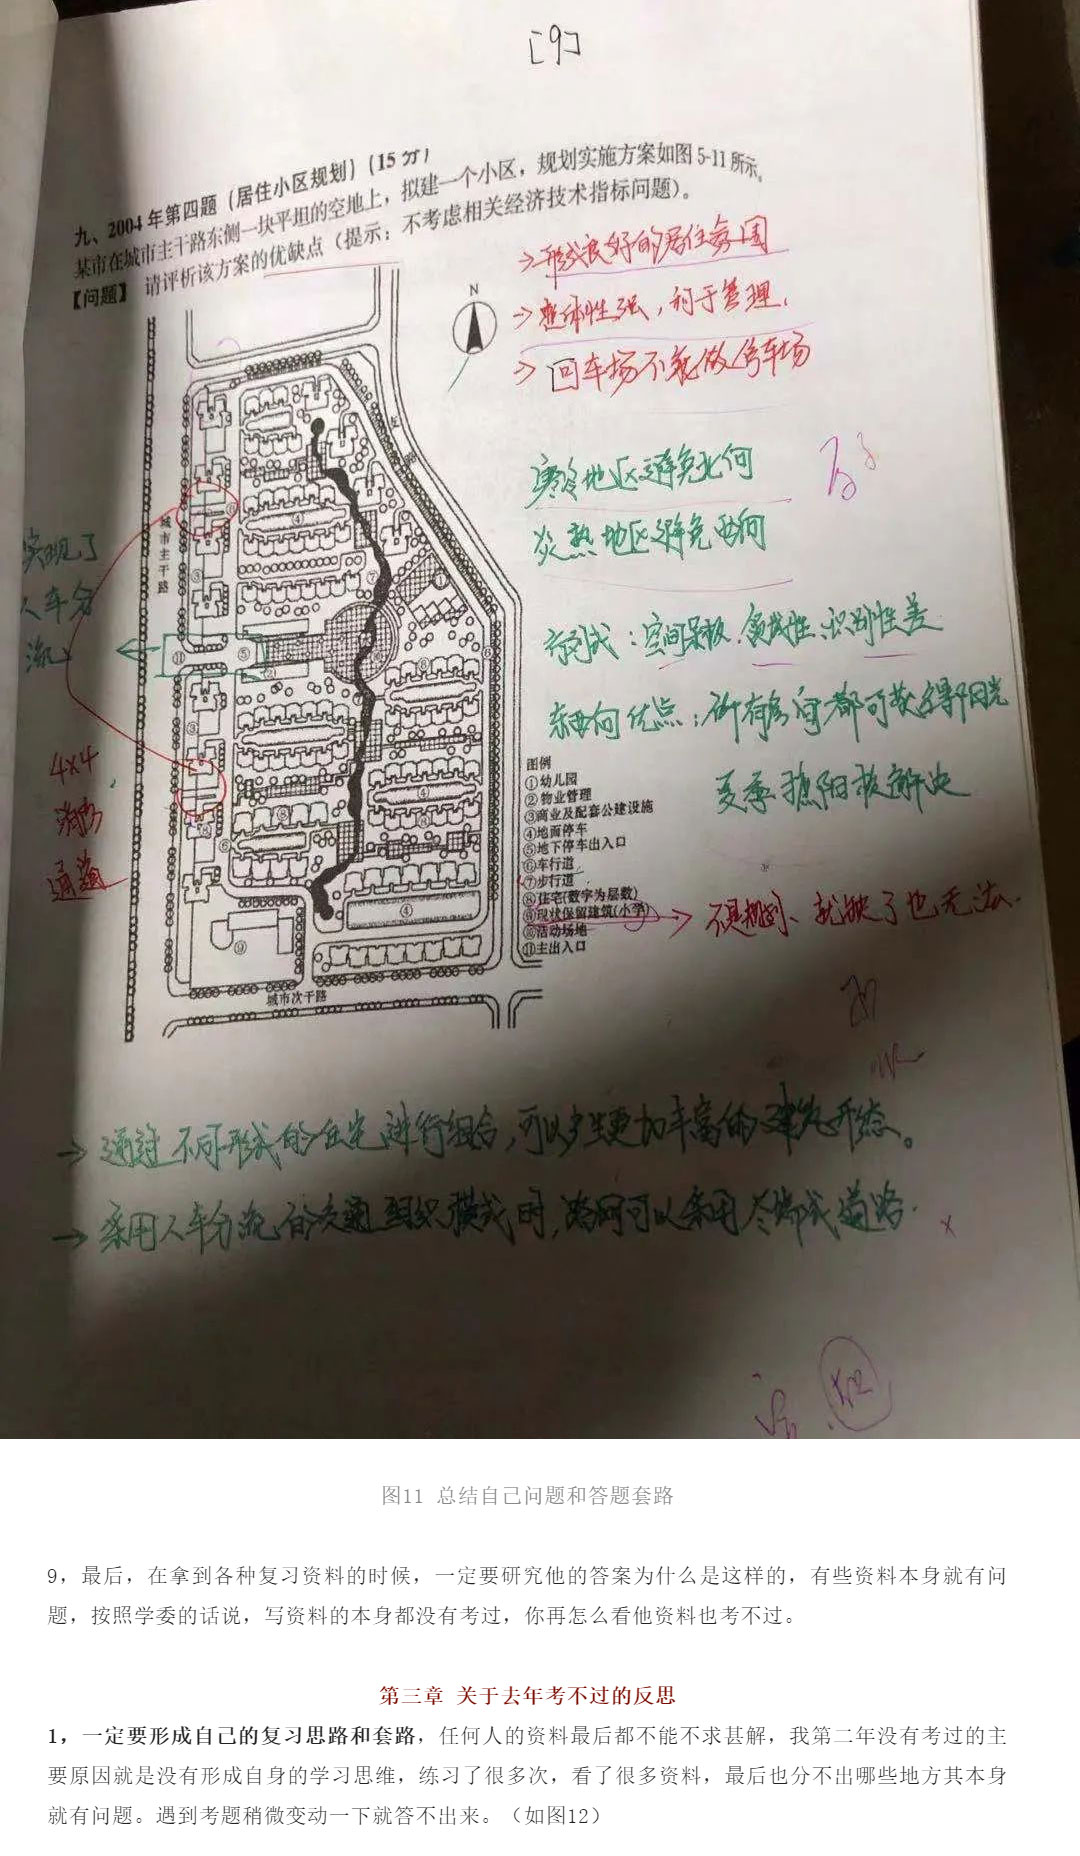 [9]
九、2004年第四题（居住小区规划）（15分）
某市在城市主干路东侧一块平坦的空地上，拟建一个小区，规划实施方案如图5-11所示。
【问题】 请评析该方案的优缺点（提示：不考虑相关经济技术指标问题）。
→形成良好的居住氛围
→整体性强，利于管理.
→回车场不能做停车场
N
寒冷地区避免北向
炎热地区避免西向
实现了
人车分
流
城市主干路
行列式：空间呆板、识别性差
东西向优点：所有房间都可获得阳光
夏季遮阳被解决
4×4
消防
通道
图例
①幼儿园
②物业管理
③商业及配套公建设施
④地面停车
⑤地下停车出入口
⑥车行道
⑦步行道
⑧住宅(数字为层数)
⑨现状保留建筑(小学)
⑩活动场地
⑪主出入口
城市次干路
→通过不同形式的住宅进行组合，可以产生更加丰富的建筑形态。
→采用人车分流的交通组织模式时，路网可以采用尽端式道路.
图11 总结自己问题和答题套路
9，最后，在拿到各种复习资料的时候，一定要研究他的答案为什么是这样的，有些资料本身就有问
题，按照学委的话说，写资料的本身都没有考过，你再怎么看他资料也考不过。
第三章 关于去年考不过的反思
1，一定要形成自己的复习思路和套路，任何人的资料最后都不能不求甚解，我第二年没有考过的主
要原因就是没有形成自身的学习思维，练习了很多次，看了很多资料，最后也分不出哪些地方其本身
就有问题。遇到考题稍微变动一下就答不出来。（如图12）